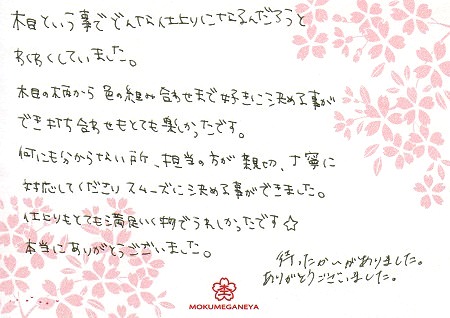 木目という事でどんな仕上りになるんだろうと
わくわくしていました。
木目の柄から色の組み合わせまで好きに決める事が
でき打ち合わせもとても楽しかったです。
何にも分からない所、担当の方が親切、丁寧に
対応してくださりスムーズに決める事ができました。
仕上りもとても満足いく物でうれしかったです☆
本当にありがとうございました。
待ったかいがありました。
ありがとうございました。
MOKUMEGANEYA